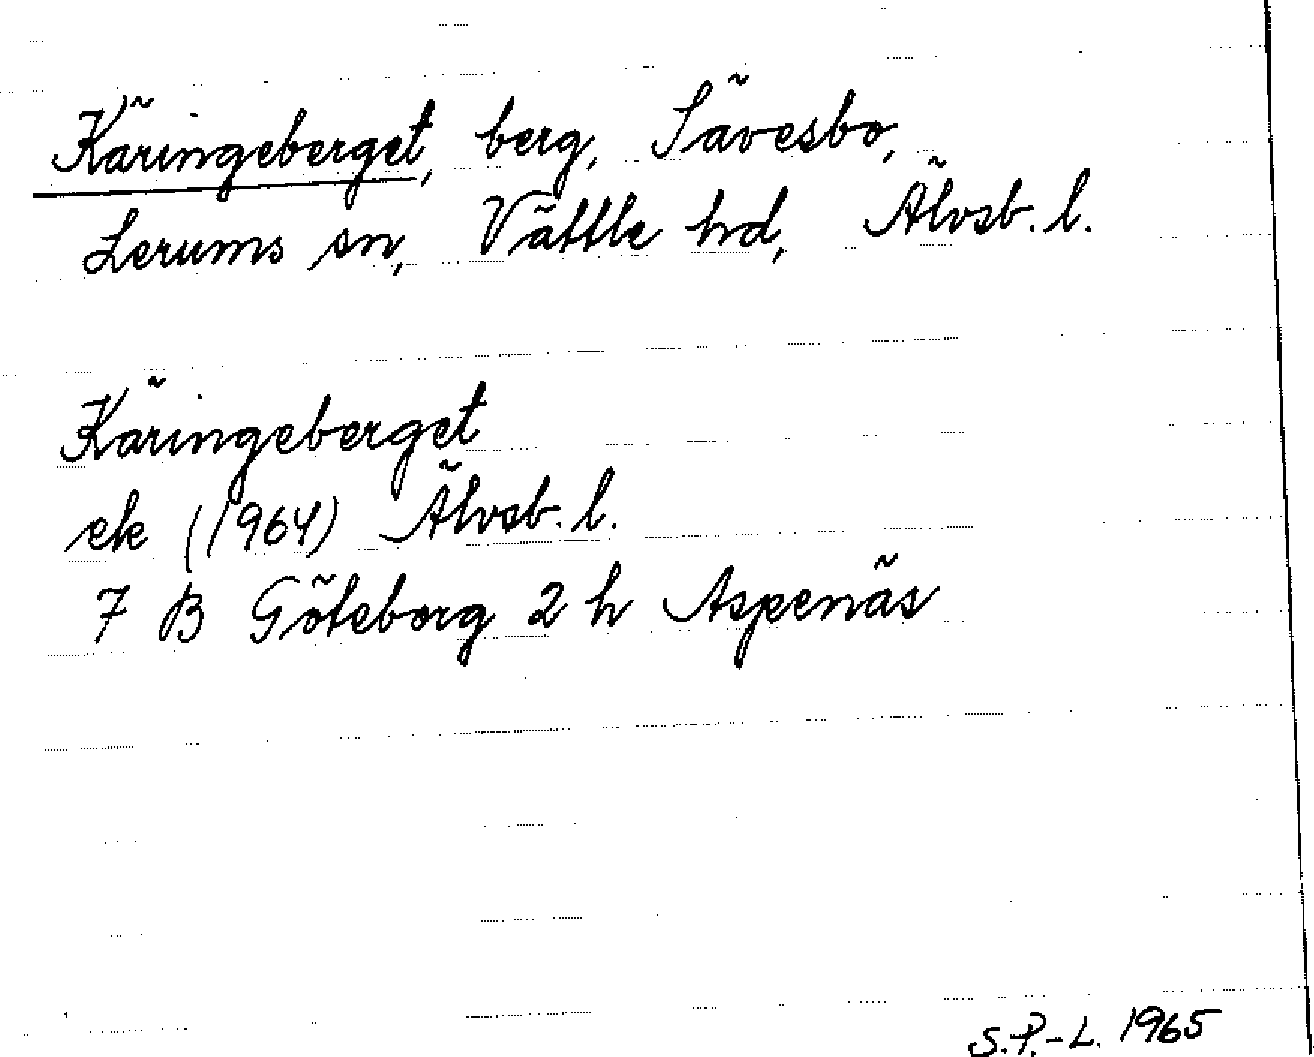 Käringeberget, berg, Sävesbo,
Lerums sn, Vättle hd, Älvsb. l.
Käringeberget
ek (1964) Älvsb. l.
7 B Göteborg 2 h Aspenäs
S.P.-L. 1965